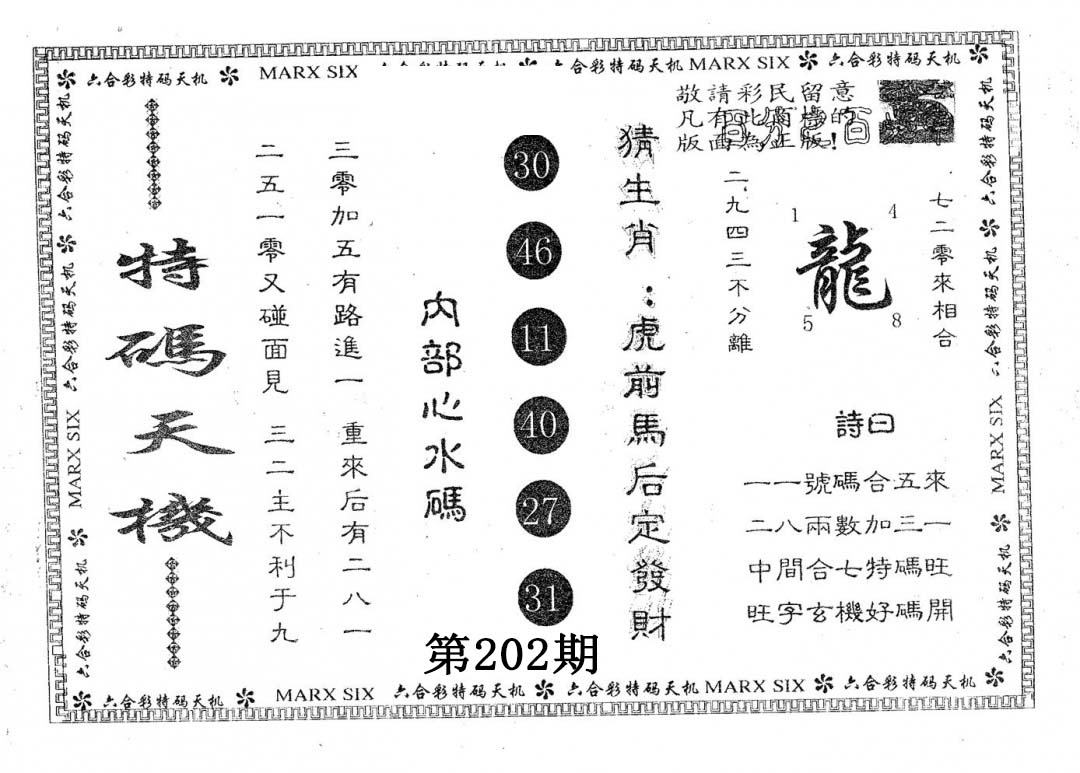 六合彩特码天机 MARX SIX 六合彩特码天机 MARX SIX 六合彩特码天机
敬請彩民留意
凡有此商標的
版面為正版!
七二零來相合
1 4
龍
5 8
二、九四三不分離
詩曰
一一號碼合五來
二八兩數加三一
中間合七特碼旺
旺字玄機好碼開
猜生肖:虎前馬后定發財
30
46
11
40
27
31
内部心水碼
三零加五有路進一 重來后有二八一
二五一零又碰面見 三二主不利于九
特碼天機
第202期
六合彩特码天机 MARX SIX 六合彩特码天机
六合彩特码天机 MARX SIX 六合彩特码天机
六合彩特码天机 MARX SIX 六合彩特码天机 MARX SIX 六合彩特码天机